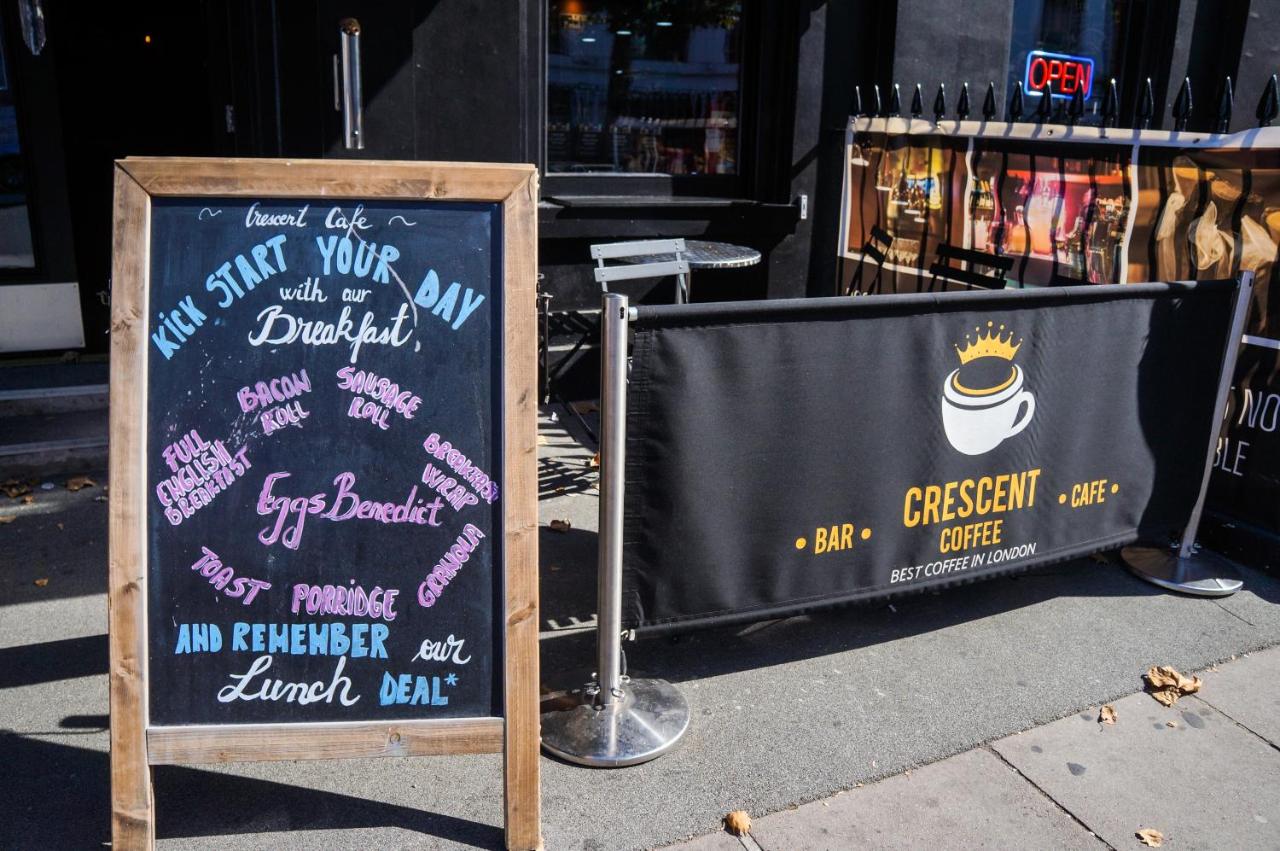 OPEN
~ Crescent Cafe ~
KICK START YOUR DAY
with our
Breakfast
BACON
ROLL
SAUSAGE
ROLL
FULL
ENGLISH
BREAKFAST
BREAKFAST
WRAP
Eggs Benedict
TOAST
PORRIDGE
GRANOLA
AND REMEMBER our
Lunch DEAL*
• BAR • CRESCENT • CAFE •
COFFEE
BEST COFFEE IN LONDON
NO
BLE